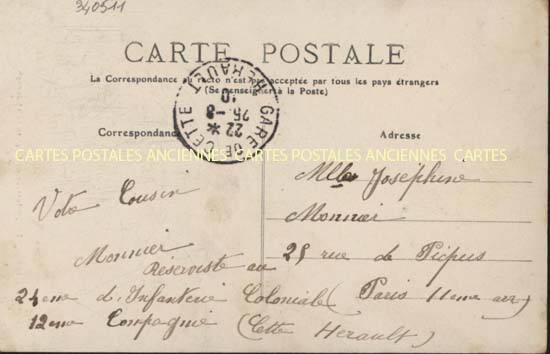 340511
CARTE POSTALE
La Correspondance au recto n'est pas acceptée par tous les pays étrangers
(Se renseigner à la Poste)
GARE DE CETTE
HÉRAULT
22 *
25 -8
10
Correspondance
Adresse
CARTES POSTALES ANCIENNES CARTES POSTALES ANCIENNES CARTES
Votre Cousin
Monnier
Réserviste au
24eme d'Infanterie Coloniale
12eme Compagnie (Cette Herault)
Mlle Joséphine
Monnier
25 rue de Picpus
(Paris 11eme arr)